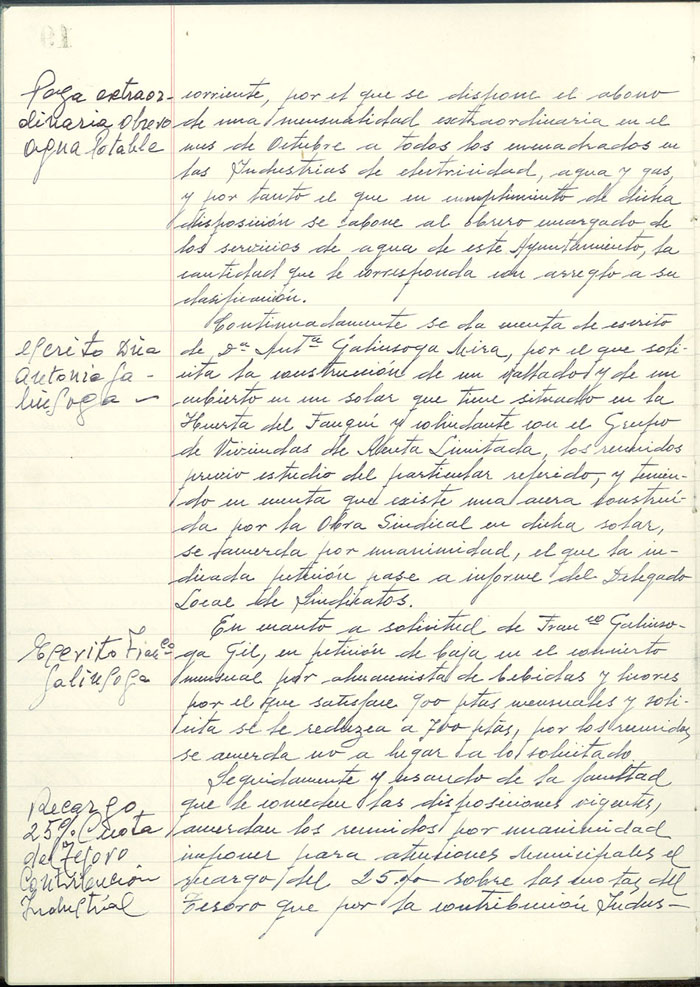 Paga extraor-
dinaria obrero
agua Potable
corriente, por el que se dispone el abono
de una mensualidad extraordinaria en el
mes de Octubre a todos los encuadrados en
las Industrias de electricidad, agua y gas,
y por tanto el que en cumplimiento de dicha
disposición se abone al obrero encargado de
los servicios de agua de este Ayuntamiento, la
cantidad que le corresponda con arreglo a su
clasificación.
escrito Dña
Antonia Ga-
linsoga
Continuadamente se da cuenta de escrito
de Dª Antª Galinsoga Mira, por el que soli-
cita la construcción de un vallado y de un
cubierto en un solar que tiene situado en la
Huerta del Fauquí y colindante con el Grupo
de Viviendas de Renta Limitada, los reunidos
previo estudio del particular referido, y tenien-
do en cuenta que existe una acera construí-
da por la Obra Sindical en dicha solar,
se acuerda por unanimidad, el que la in-
dicada petición pase a informe del Delegado
Local de Sindicatos.
Escrito Franco
Galinsoga
En cuanto a solicitud de Franco Galinso-
ga Gil, en petición de baja en el concierto
mensual por almacenista de bebidas y licores
por el que satisface 900 ptas mensuales y soli-
cita se le reduzca a 700 ptas, por los reunidos
se acuerda no a lugar a lo solicitado
Recargo
25% Cuota
del Tesoro
Contribución
Industrial
Seguidamente y usando de la facultad
que le conceden las disposiciones vigentes,
acuerdan los reunidos por unanimidad,
imponer para atenciones Municipales el
recargo del 25% sobre las cuotas del
Tesoro que por la contribución Indus-